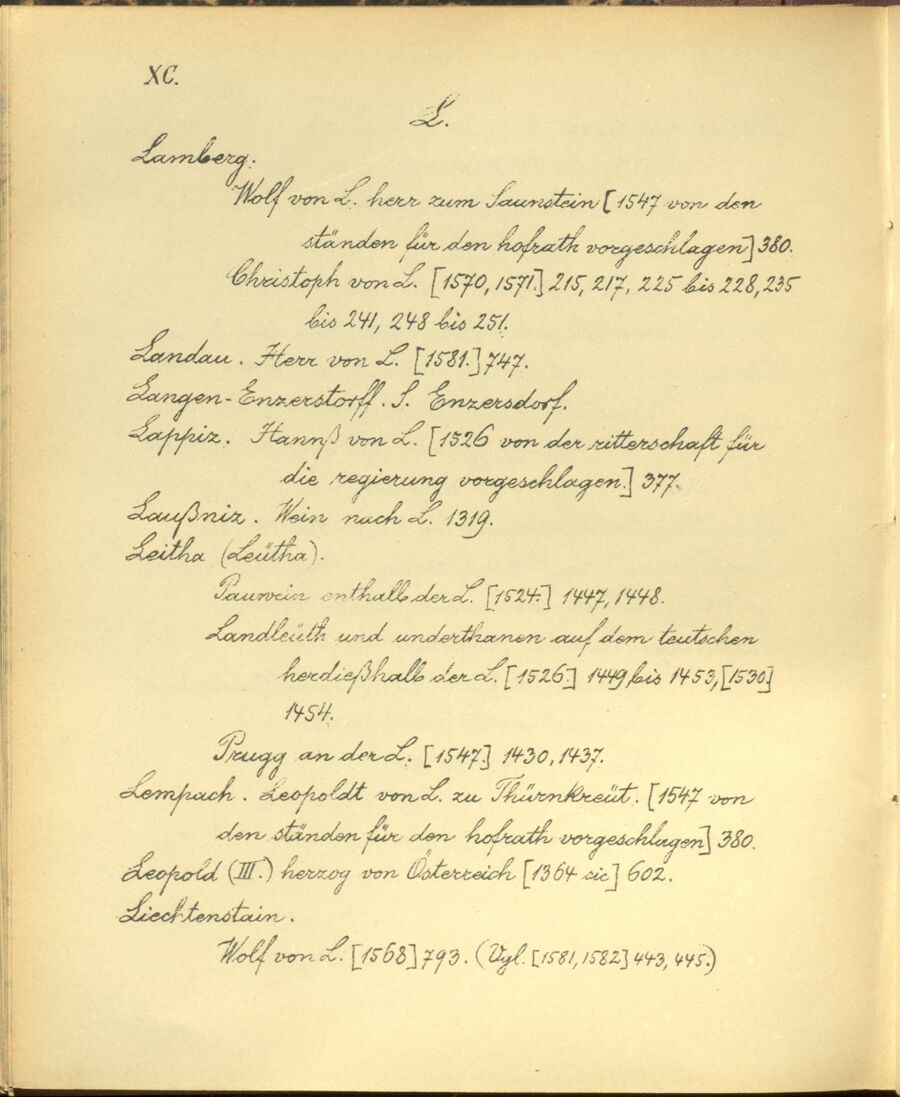 XC.
L.
Lamberg.
Wolf von L. herr zum Saunstein [1547 von den
ständen für den hofrath vorgeschlagen] 380.
Christoph von L. [1570, 1571.] 215, 217, 225 bis 228, 235
bis 241, 248 bis 251.
Landau. Herr von L. [1581.] 747.
Langen-Enzerstorff. S. Enzersdorf.
Lappiz. Hannß von L. [1526 von der ritterschaft für
die regierung vorgeschlagen.] 377.
Laußniz. Wein nach L. 1319.
Leitha (Leütha).
Pauwein enthalb der L. [1524.] 1447, 1448.
Landleüth und underthanen auf dem teutschen
herdießhalb der L. [1526.] 1449 bis 1453, [1530]
1454.
Prugg an der L. [1547.] 1430, 1437.
Lempach. Leopoldt von L. zu Thürnkreüt. [1547 von
den ständen für den hofrath vorgeschlagen] 380.
Leopold (III.) herzog von Österreich [1364 sic] 602.
Liechtenstain.
Wolf von L. [1568] 793. (Vgl. [1581, 1582] 443, 445.)